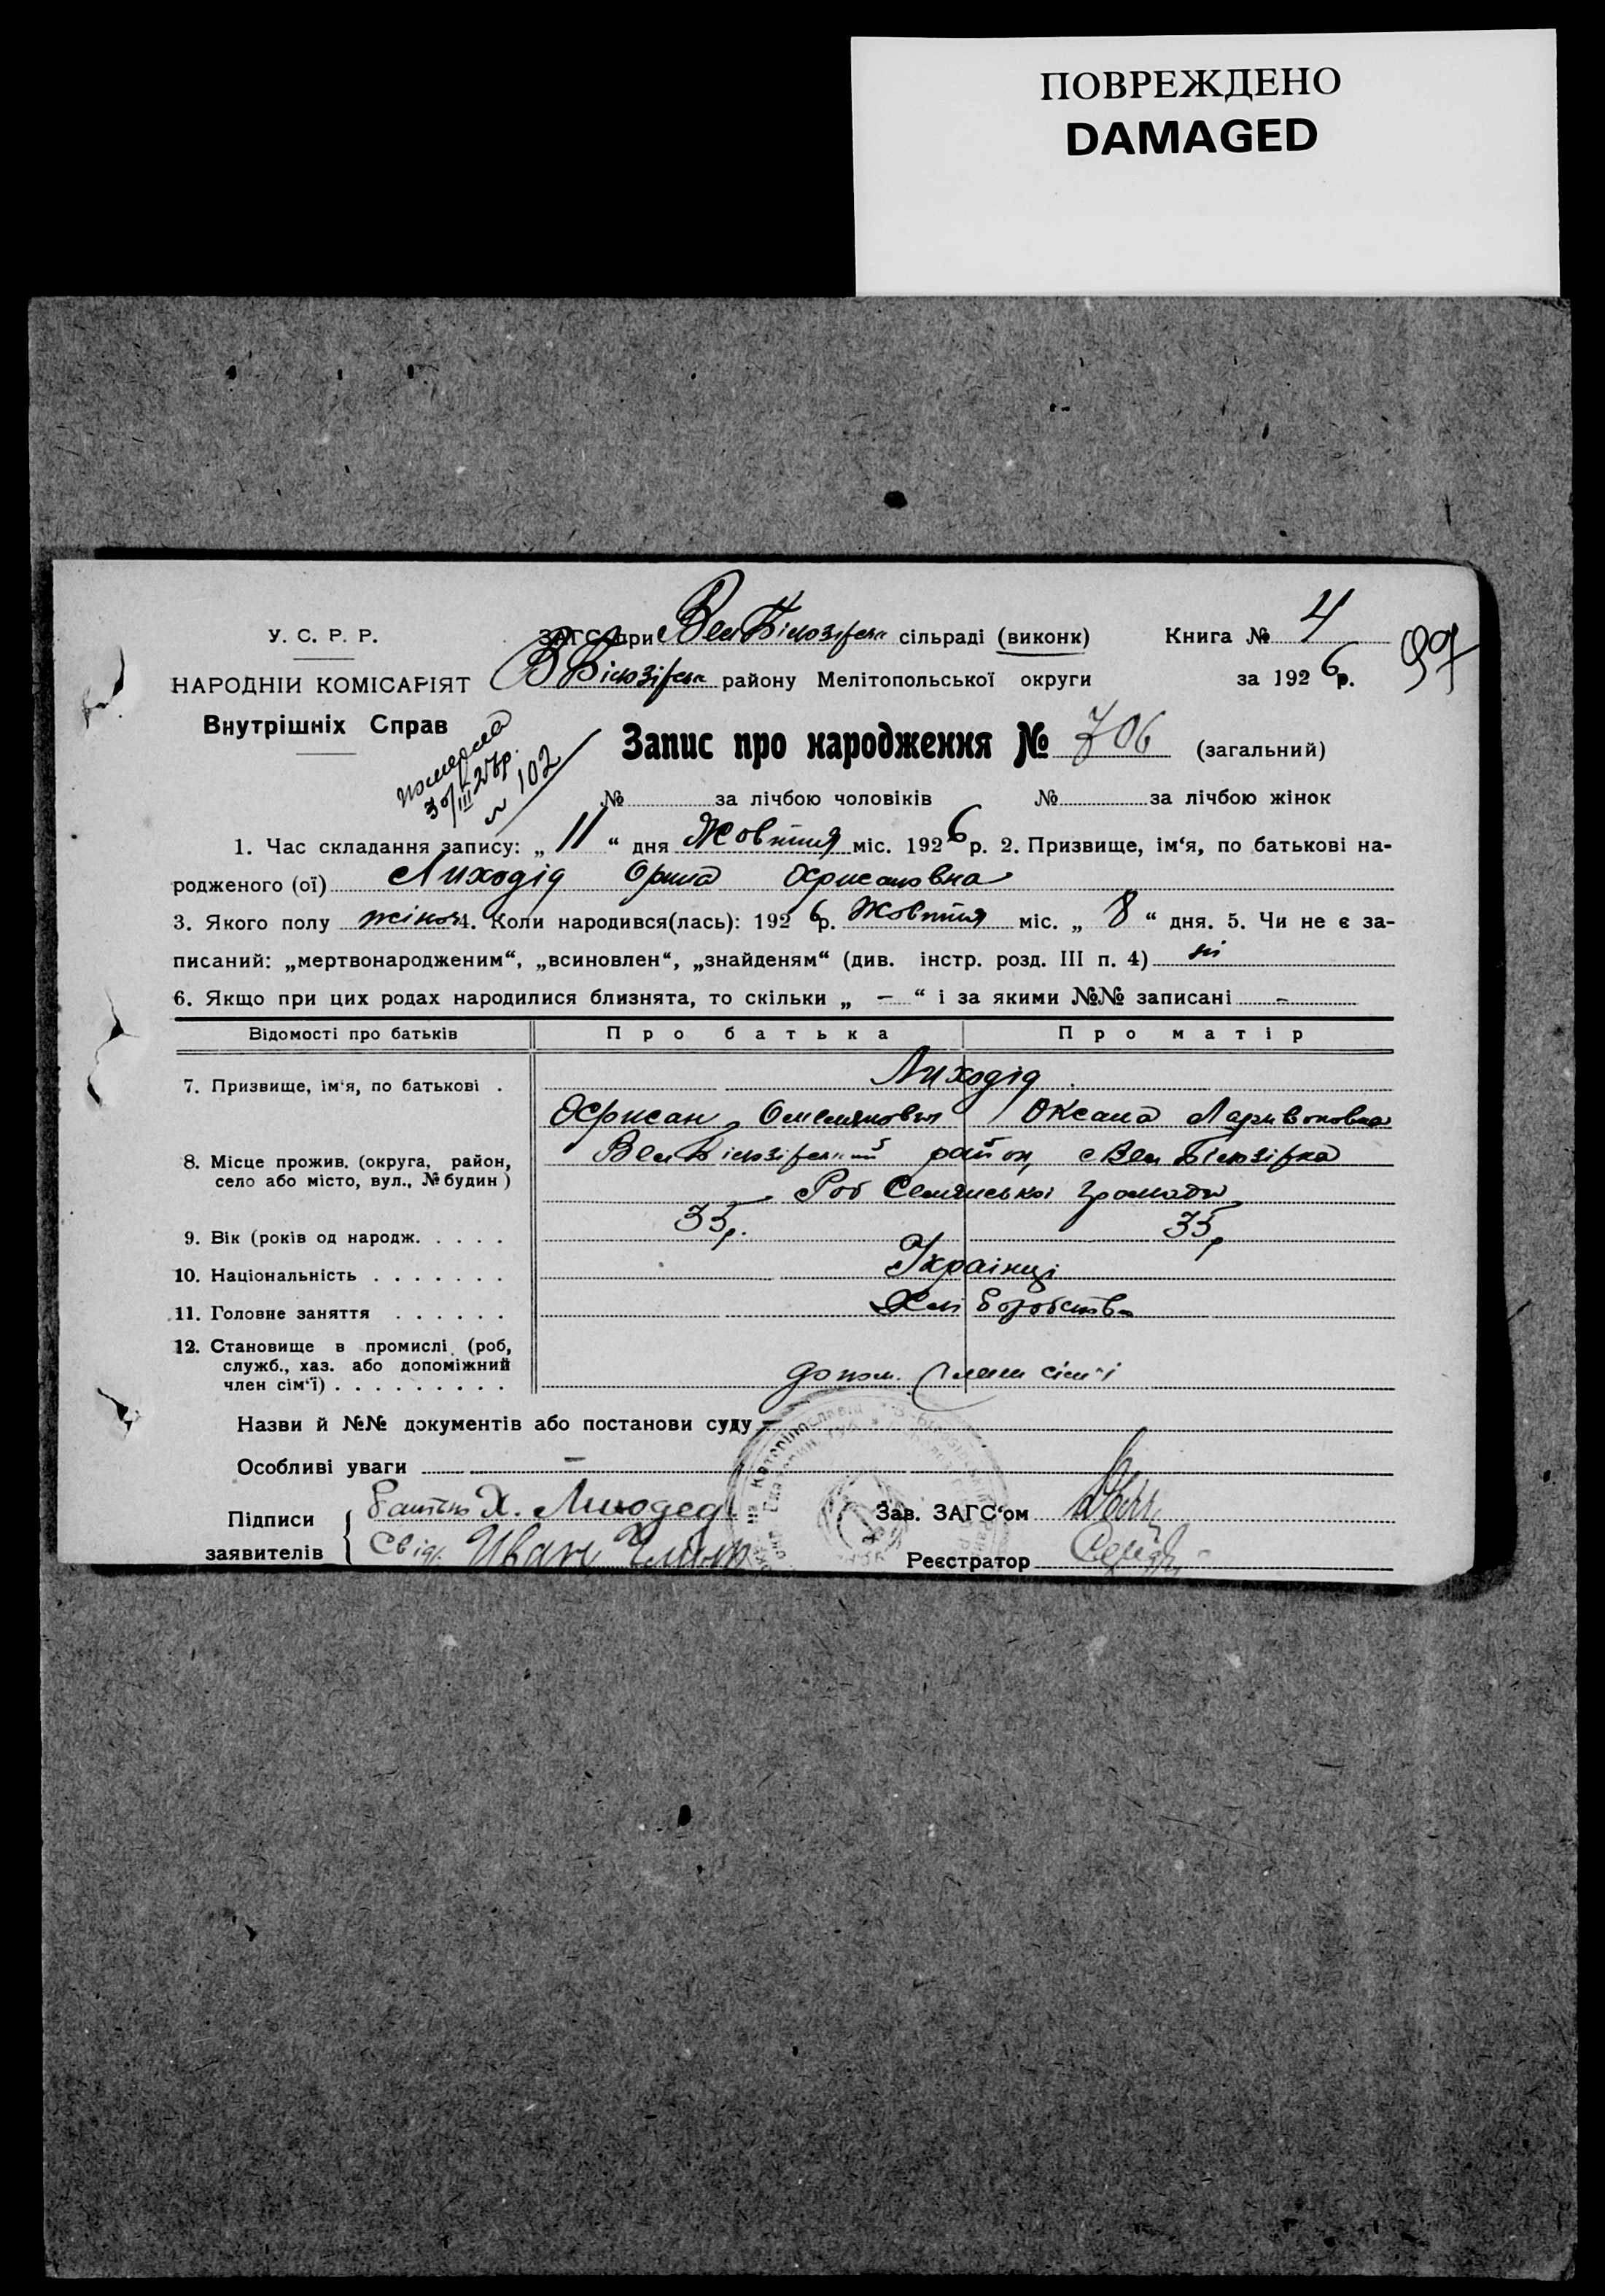 ПОВРЕЖДЕНО
DAMAGED
У. С. Р. Р. ЗАГС при Вел Білозірськ сільраді (виконк) Книга № 4
НАРОДНІЙ КОМІСАРІЯТ В Білозірськ району Мелітопольської округи за 1926 р. 97
Внутрішніх Справ
померла
30/III 27р.
№ 102
Запис про народження № 706 (загальний)
№ за лічбою чоловіків № за лічбою жінок
1. Час складання запису: „ 11 “ дня Жовтня міс. 1926 р. 2. Призвище, ім‘я, по батькові на-
родженого (ої) Лиходід Орина Хрисановна
3. Якого полу жіноч 4. Коли народився(лась): 1926 р. Жовтня міс. „ 8 “ дня. 5. Чи не є за-
писаний: „мертвонародженим“, „всиновлен“, „знайденям“ (див. інстр. розд. III п. 4) ні
6. Якщо при цих родах народилися близнята, то скільки „ – “ і за якими №№ записані –
Відомості про батьків Про батька Про матір
7. Призвище, ім‘я, по батькові . Лиходід
Хрисан Омелянович Оксана Ларивоновна
8. Місце прожив. (округа, район, село або місто, вул., № будин) Вел Білозірський район, с Вел Білозірка
громади
9. Вік (років од народж. . . . . 35 р. 35 р
10. Національність . . . . . . . Українці
11. Головне заняття . . . . . . Хліборобство
12. Становище в промислі (роб,
служб., хаз. або допоміжний
член сім‘ї) . . . . . . . . . допом. член сім‘ї
Назви й №№ документів або постанови суду –
Особливі уваги –
Підписи батько Х. Лиходед Зав. ЗАГС‘ом
заявителів Свід. Иван Реєстратор